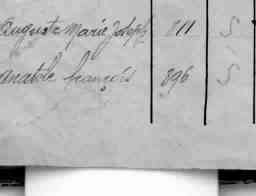 Auguste Marie Joseph 811 S
Anatole François 896 S